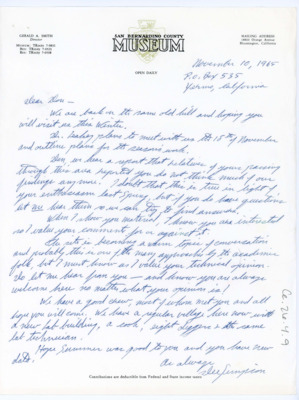 GERALD A. SMITH
Director
SAN BERNARDINO COUNTY
MUSEUM
OPEN DAILY
MAILING ADDRESS
Bloomington, California
November 10, 1965
P.O. Box 535
Yermo, California
Dear Lou -
We are back on the same old hill and hoping you
will visit us this winter.
The Leakey plans to meet with us the 15th of November
and outline plans for the season's work.
Dee, in hear a report that believe of yours, passing
through this area reported you do not think much of our
findings any more. I doubt that this is true in light of
your enthusiasm last Spring, but if you do have questions
let me hear them so we can try to find answers.
When I show you material I know you are interested
so I value your comments for or against it.
The site is becoming a warm topic of conversation
and probably this is one of the many approaches by the academic
folks but I must know as I value your technical opinion.
So let me hear from you — and know you are always
welcome here no matter what your opinion is!
We have a good crew, most of whom met you and all
hope you will come. We have a regular village here now, with
a new lab building, a cook, eight diggers & the same
lab technician.
Hope Summer was good to you and you have new
data.
As always
Dee Simpson
Contributions are deductible from Federal and State income taxes